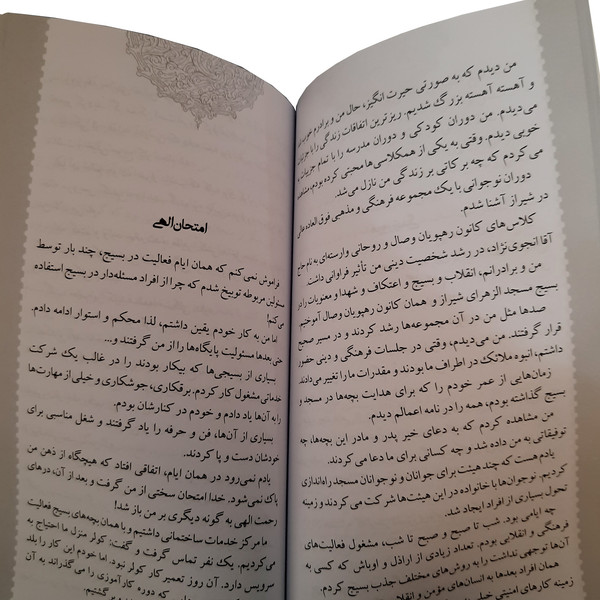 من دیدم که به صورتی حیرت انگیز، حال من و برادرم خوب
و آهسته آهسته بزرگ شدیم. ریزترین اتفاقات زندگی را با
می‌دیدم. من دوران کودکی و دوران مدرسه را با تمام جزییات به
خوبی دیدم. وقتی به یکی از همکلاسی‌ها محبتی کرده بودم، مشاهده
می کردم که چه برکاتی بر زندگی من نازل می‌شد.
دوران نوجوانی با یک مجموعه فرهنگی و مذهبی فوق العاده عالی
در شیراز آشنا شدم.
کلاس‌های کانون رهپویان وصال و روحانی وارسته‌ای به نام حاج
آقا انجوی‌نژاد، در رشد شخصیت دینی من تأثیر فراوانی داشت.
من و برادرانم، انقلاب و بسیج و اعتکاف و شهدا و معنویات را در
بسیج مسجد الزهرای شیراز و همان کانون رهپویان وصال آموختیم.
صدها مثل من در آن مجموعه‌ها رشد کردند و در مسیر صحیح
قرار گرفتند. من می‌دیدم، وقتی در جلسات فرهنگی و دینی حضور
داشتم، انبوه ملائک در اطراف ما بودند و مقدرات ما را تغییر می‌دادند
زمان‌هایی از عمر خودم را که برای هدایت بچه‌ها در مسجد و
بسیج گذاشته بودم، همه را در نامه اعمالم دیدم.
من مشاهده کردم که به دعای خیر پدر و مادر این بچه‌ها، چه
توفیقاتی به من داده شد و چه کسانی برای ما دعا می‌کردند.
یادم هست که چند هیئت برای جوانان و نوجوانان مسجد راه‌اندازی
کردیم. نوجوان‌ها با خانواده در این هیئت‌ها شرکت می کردند و زمینه
تحول بسیاری از افراد ایجاد شد.
چه ایامی بود. شب تا صبح و صبح تا شب، مشغول فعالیت‌های
فرهنگی و انقلابی بودم. تعداد زیادی از اراذل و اوباش که کسی به
آن‌ها توجهی نداشت را به روش‌های مختلف جذب بسیج کردم.
همان افراد بعدها به انسان‌های مؤمن و انقلابی
زمینه کارهای امنیتی خیلی
امتحان الهی
فراموش نمی کنم که همان ایام فعالیت در بسیج، چند بار توسط
مسئولین مربوطه توبیخ شدم که چرا از افراد مسئله‌دار در بسیج استفاده
می کنم!
اما من به کار خودم یقین داشتم، لذا محکم و استوار ادامه دادم.
حتی بعدها مسئولیت پایگاه‌ها را از من گرفتند و...
بسیاری از بسیجی‌ها که بیکار بودند را در غالب یک شرکت
خدماتی مشغول کار کردم. برقکاری، جوشکاری و خیلی از مهارت‌ها
را به آن‌ها یاد دادم و خودم در کنارشان بودم.
بسیاری از آن‌ها، فن و حرفه را یاد گرفتند و شغل مناسبی برای
خودشان دست و پا کردند.
یادم نمی‌رود در همان ایام، اتفاقی افتاد که هیچگاه از ذهن من
پاک نمی‌شود. خدا امتحان سختی از من گرفت و بعد از آن، درهای
رحمت الهی به گونه دیگری بر من باز شد!
ما مرکز خدمات ساختمانی داشتیم و با همان بچه‌های بسیج فعالیت
می‌کردیم. یک نفر تماس گرفت و گفت: کولر منزل ما احتیاج به
سرویس دارد. آن روز تعمیر کار کولر نبود. اما خودم این کار را بلد
که دوره کارآموزی را می گذراند به آن
برگشتیم.